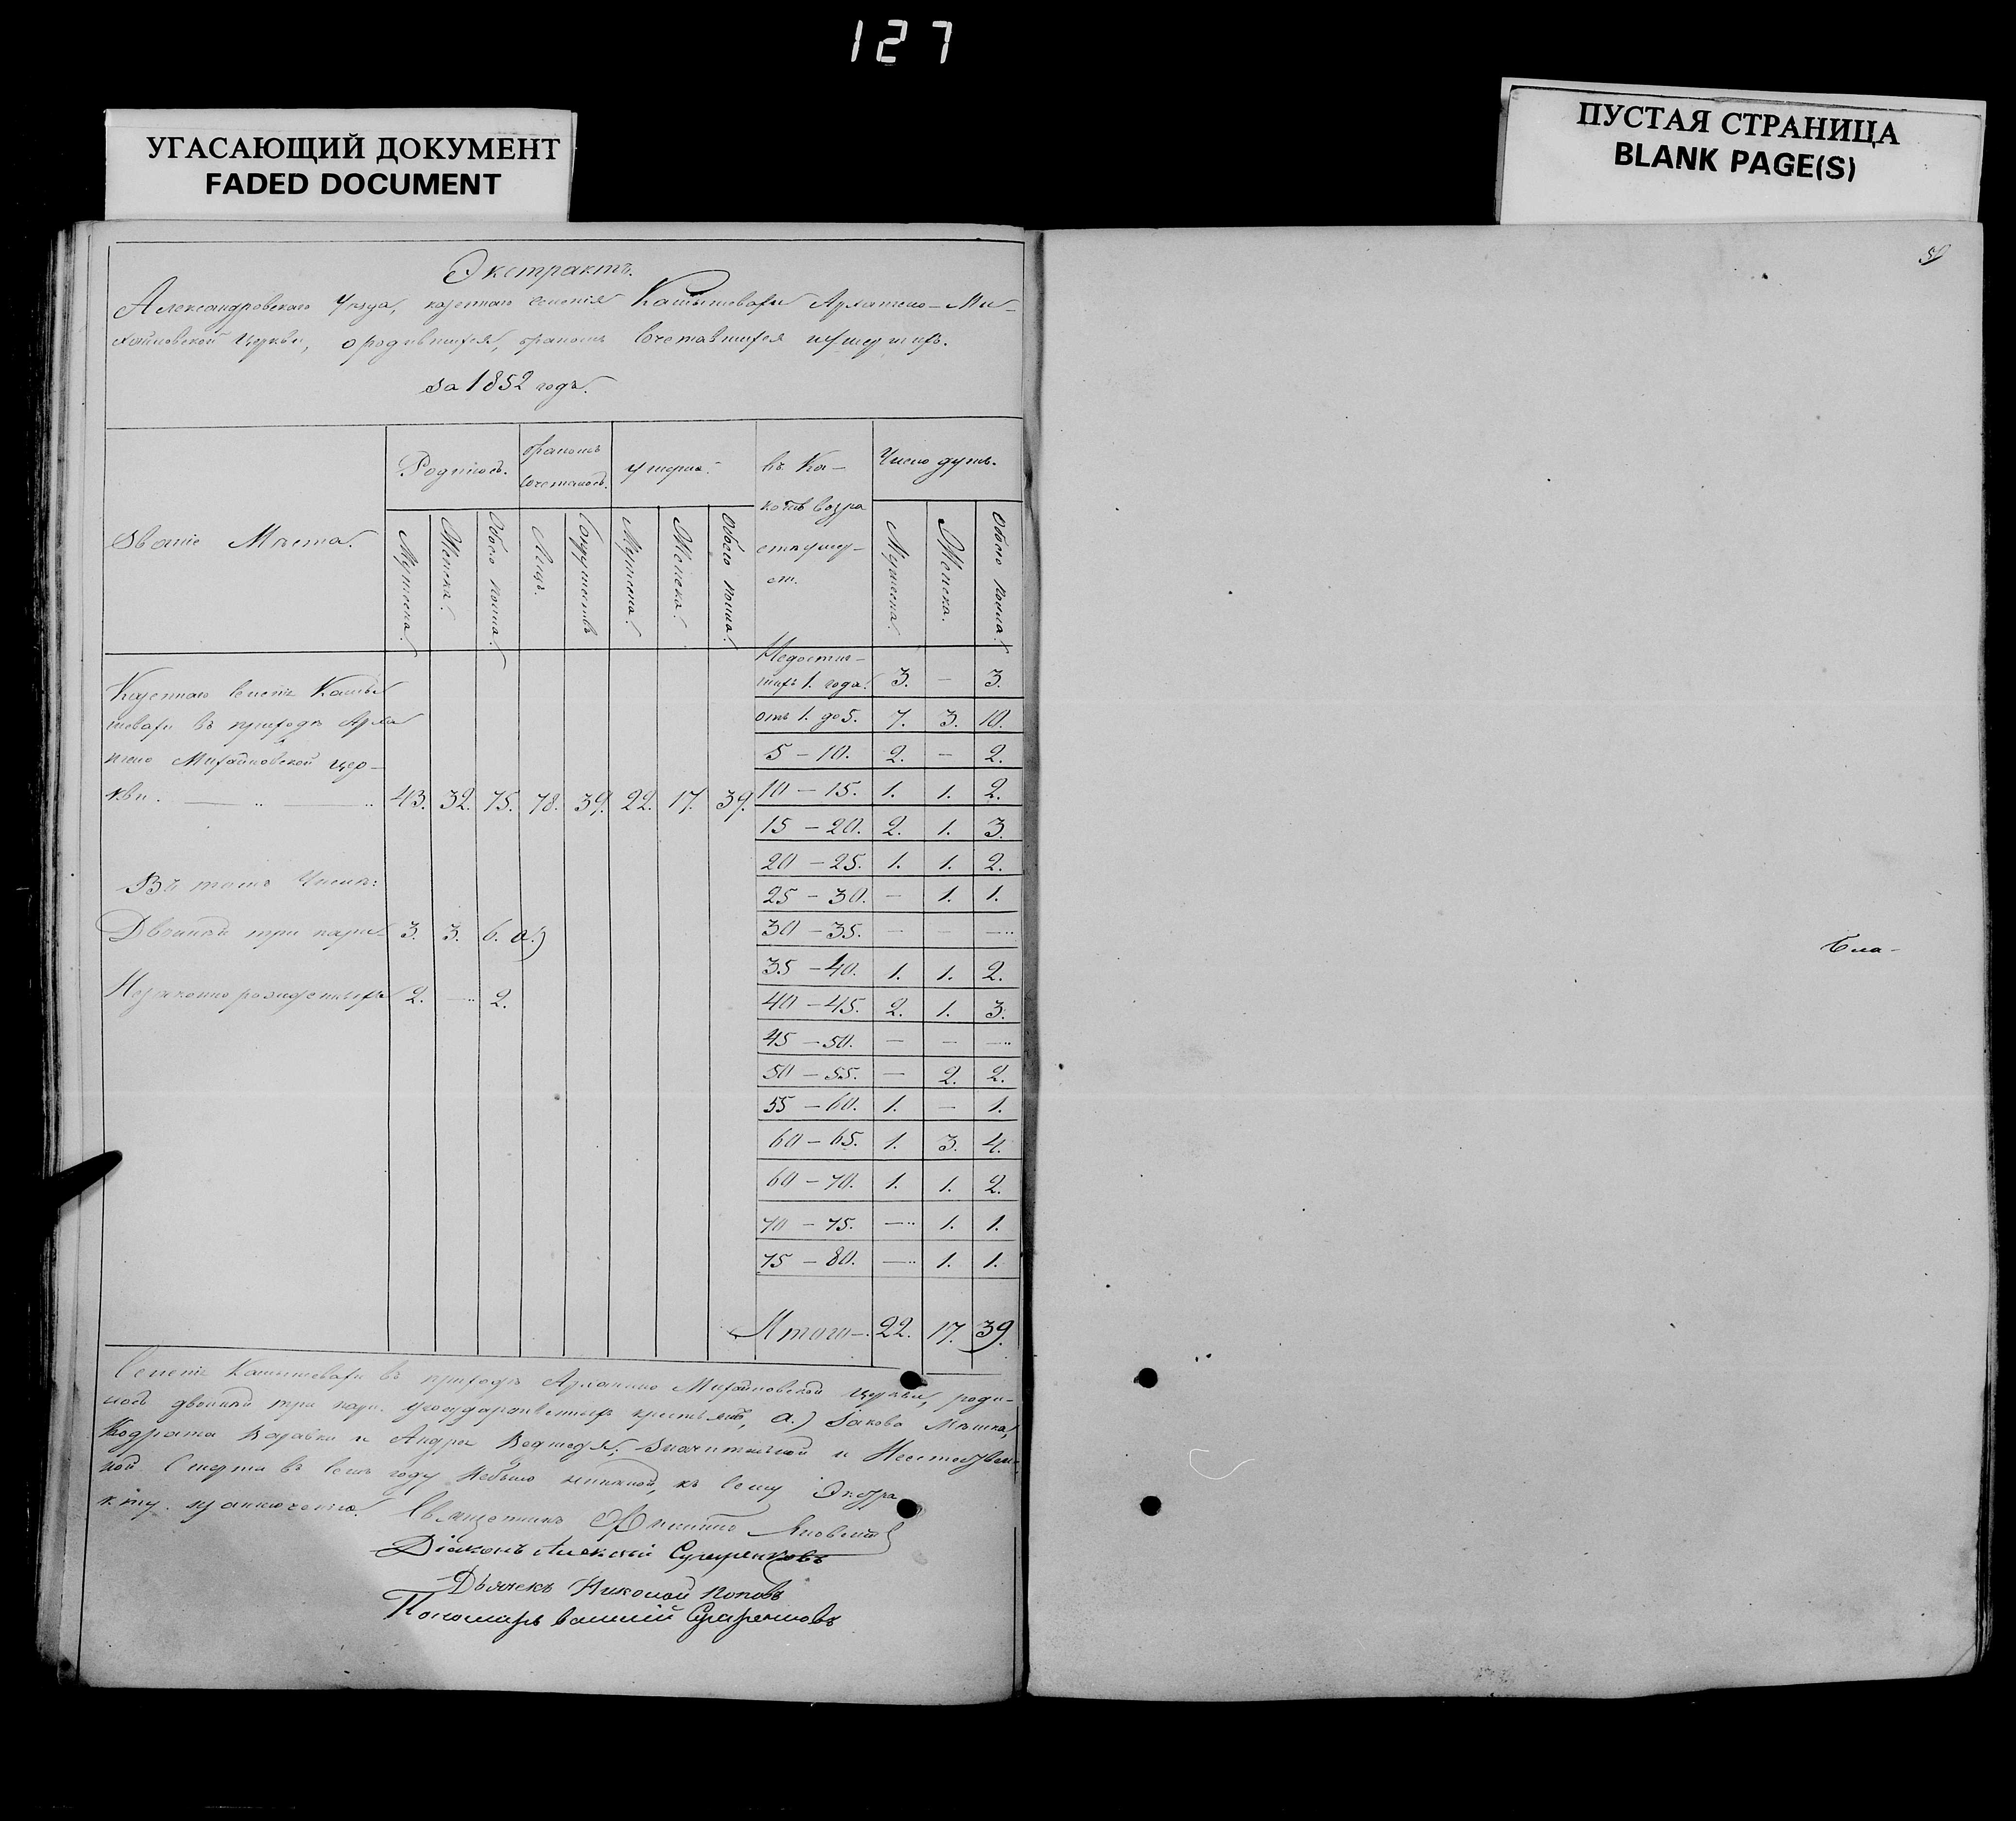 127
УГАСАЮЩИЙ ДОКУМЕНТ
FADED DOCUMENT
ПУСТАЯ СТРАНИЦА
BLANK PAGE(S)
Экстрактъ.
Александровскаго Уѣзда, казеннаго селенія Камышевахи Архангело-Ми-
хайловской Церкви, о родившихся, бракомъ сочетавшихся и умершихъ.
За 1852 годъ.
Званіе Мѣста.
Родилось.
бракомъ сочеталось.
умерло.
въ Ка-
комъ возра
стѣ умер-
Число душъ.
Мужеска.
Женска.
Обоего пола.
Лицъ.
Супружествъ
Мужеска.
Женска.
Обоего пола.
Мужеска.
Женска.
Обоего пола.
Казенное селеніе Камы
шевахи въ приходѣ Арха
нгело Михайловской цер-
кви. 43. 32. 75. 78. 39. 22. 17. 39.
Въ томъ Числѣ:
Двойней три пары 3. 3. 6. а.)
Незаконнорожденныхъ 2. — 2.
Недостиг-
шихъ 1. года. 3. — 3.
отъ 1. до 5. 7. 3. 10.
5 – 10. 2. — 2.
10 – 15. 1. 1. 2.
15 – 20. 2. 1. 3.
20 – 25. 1. 1. 2.
25 – 30. — 1. 1.
30 – 35. — — —
35 – 40. 1. 1. 2.
40 – 45. 2. 1. 3.
45 – 50. — — —
50 – 55. — 2. 2.
55 – 60. 1. — 1.
60 – 65. 1. 3. 4.
60 – 70. 1. 1. 2.
70 – 75. — 1. 1.
75 – 80. — 1. 1.
Итого – 22. 17. 39.
Селеніе Камышевахи въ приходѣ Архангело Михайловской церкви, роди-
лось двойней три пары государственныхъ крестьянъ, а.) Іакова
и Андрея Ведмедя; значительной и
ной Смерти въ семъ году небыло никакой, къ сему Экстра
кту
Священникъ
Діаконъ Алексѣй
Дьячекъ Николай Поповъ
Пономарь Василій
Бла-